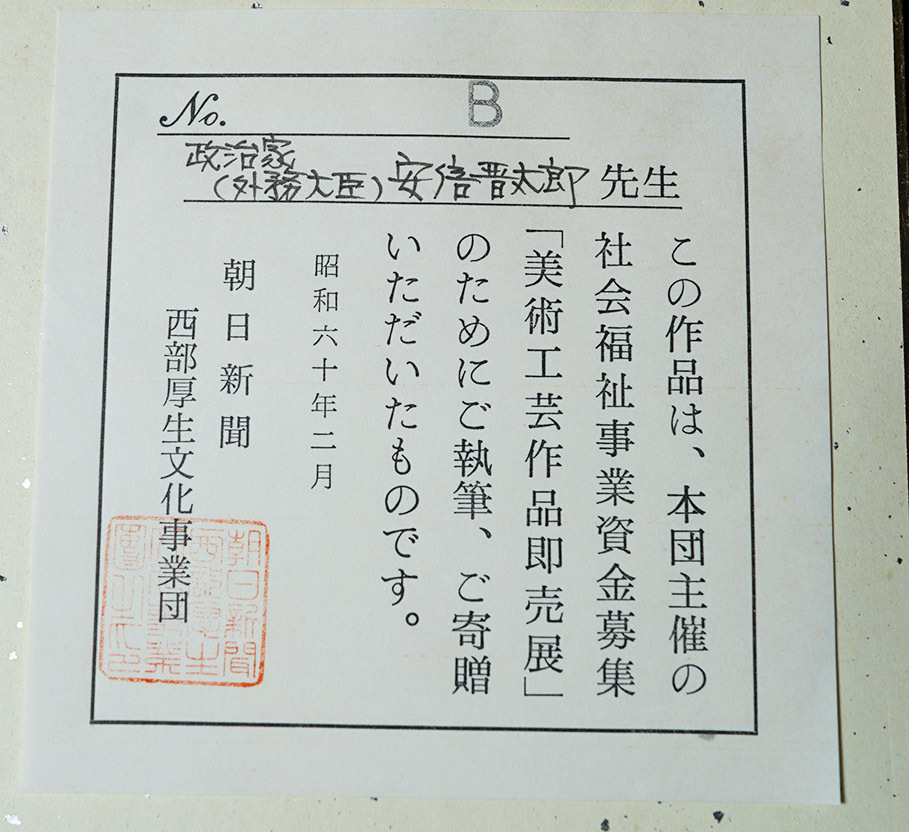 No. B
政治家
(外務大臣) 安倍晋太郎 先生
この作品は、本団主催の
社会福祉事業資金募集
「美術工芸作品即売展」
のためにご執筆、ご寄贈
いただいたものです。
昭和六十年二月
朝日新聞
西部厚生文化事業団